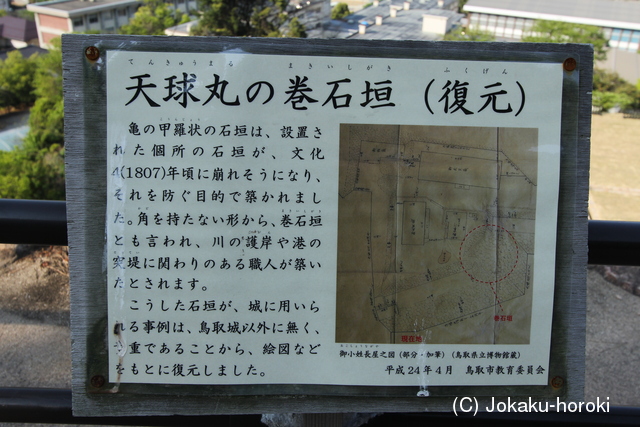 てんきゅうまる まきいしがき ふくげん
天球丸の巻石垣（復元）
亀の甲羅状の石垣は、設置さ
れた個所の石垣が、文化
4(1807)年頃に崩れそうになり、
それを防ぐ目的で築かれまし
た。角を持たない形から、巻石垣
とも言われ、川の護岸や港の
突堤に関わりのある職人が築い
たとされます。
こうした石垣が、城に用いら
れる事例は、鳥取城以外に無く、
重であることから、絵図など
をもとに復元しました。
巻石垣
現在地
御小姓長屋之図（部分・加筆）（鳥取県立博物館蔵）
平成24年4月 鳥取市教育委員会
(C) Jokaku-horoki